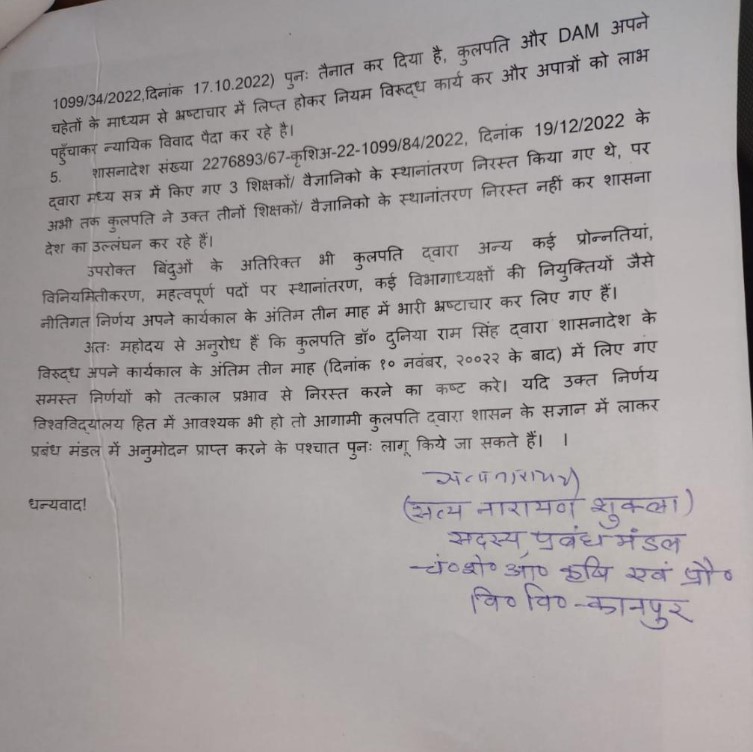 1099/34/2022,दिनांक 17.10.2022) पुनः तैनात कर दिया है, कुलपति और DAM अपने
चहेतों के माध्यम से भ्रष्टाचार में लिप्त होकर नियम विरूद्ध कार्य कर और अपात्रों को लाभ
पहुँचाकर न्यायिक विवाद पैदा कर रहे है।
5. शासनादेश संख्या 2276893/67-कृशिअ-22-1099/84/2022, दिनांक 19/12/2022 के
द्वारा मध्य सत्र में किए गए 3 शिक्षकों/ वैज्ञानिको के स्थानांतरण निरस्त किया गए थे, पर
अभी तक कुलपति ने उक्त तीनों शिक्षकों/ वैज्ञानिको के स्थानांतरण निरस्त नहीं कर शासना
देश का उल्लंघन कर रहे हैं।
उपरोक्त बिंदुओं के अतिरिक्त भी कुलपति द्वारा अन्य कई प्रोन्नतियां,
विनियमितीकरण, महत्वपूर्ण पदों पर स्थानांतरण, कई विभागाध्यक्षों की नियुक्तियों जैसे
नीतिगत निर्णय अपने कार्यकाल के अंतिम तीन माह में भारी भ्रष्टाचार कर लिए गए हैं।
अतः महोदय से अनुरोध हैं कि कुलपति डॉ० दुनिया राम सिंह द्वारा शासनादेश के
विरुद्ध अपने कार्यकाल के अंतिम तीन माह (दिनांक १० नवंबर, २०२२ के बाद) में लिए गए
समस्त निर्णयों को तत्काल प्रभाव से निरस्त करने का कष्ट करे। यदि उक्त निर्णय
विश्वविद्यालय हित में आवश्यक भी हो तो आगामी कुलपति द्वारा शासन के सज्ञान में लाकर
प्रबंध मंडल में अनुमोदन प्राप्त करने के पश्चात पुनः लागू किये जा सकते हैं। ।
सत्यनारायण
धन्यवाद!
(सत्य नारायण शुक्ला)
सदस्य, प्रबंध मंडल
चं०शे० आ० कृषि एवं प्रौ०
वि० वि०-कानपुर